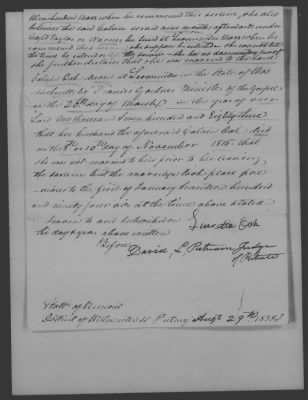 when he entered this service, she also
believes she said Calvin served nine months afterwards under
Capt Taylor or Warner he lived at Leominster Mass when he
the time he entered the service she has no documentary proof
she further declares that she was married to the said
Calvin Oak Decd at Leominster in the State of Mas
sachusetts by Francis Gardner Minister of the Gospel
on the 20th day of March in the year of our
Lord one thousand seven hundred and Eighty three
that her husband the aforesaid Calvin Oak died
on the 8th or 10th day of November 1816. that
she was not married to him prior to his leaving
the service but the marriage took place pre
vious to the first of January seventeen hundred
and ninety four viz at the time above stated
Sworn to and subscribed
the day & year above written
Before
Oak
David L Putnam Judge
of Probate
State of Vermont
District of Westminster ss Putney Augt 29th 1838